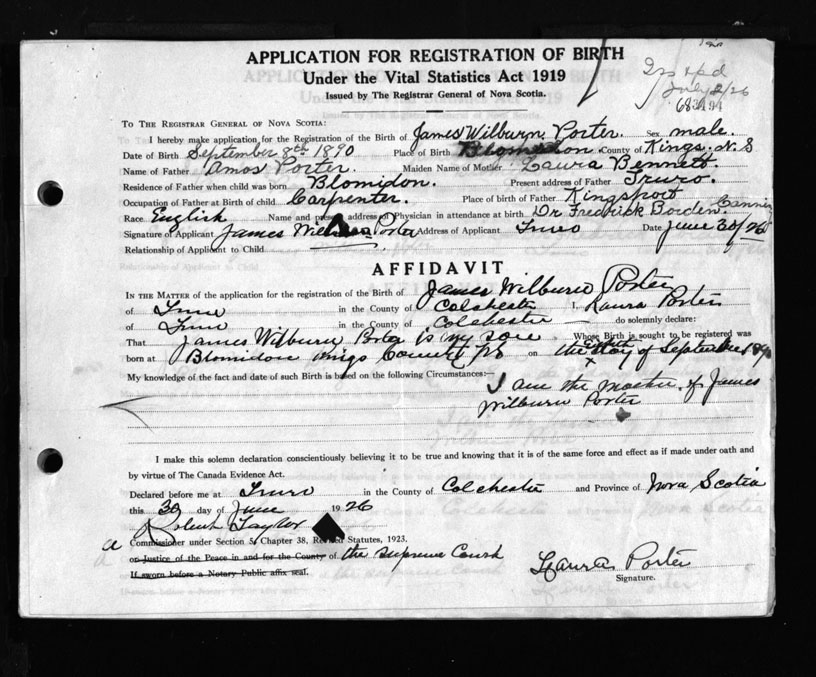 APPLICATION FOR REGISTRATION OF BIRTH
Under the Vital Statistics Act 1919
Issued by The Registrar General of Nova Scotia.
July 2/26
To The Registrar General of Nova Scotia:
I hereby make application for the Registration of the Birth of James Wilburn Porter. Sex male.
Date of Birth September 8th 1890 Place of Birth Blomidon County of Kings. N. S
Name of Father Amos Porter. Maiden Name of Mother Laura Bennett.
Residence of Father when child was born Blomidon. Present address of Father Truro.
Occupation of Father at Birth of child Carpenter. Place of birth of Father Kingsport
Race English Name and present address of Physician in attendance at birth Dr Fredrick Borden.
Signature of Applicant James Porter Address of Applicant Truro Date June 30/26
Relationship of Applicant to Child
AFFIDAVIT
In the Matter of the application for the registration of the Birth of James Wilburn Porter
of Truro in the County of Colchester I, Laura Porter
of Truro in the County of Colchester do solemnly declare:
That James Wilburn Porter is my son Whose Birth is sought to be registered was
born at Blomidon Kings County NS on the eighth day of September 1890
My knowledge of the fact and date of such Birth is based on the following Circumstances:—
I am the mother of James
Wilburn Porter
I make this solemn declaration conscientiously believing it to be true and knowing that it is of the same force and effect as if made under oath and
by virtue of The Canada Evidence Act.
Declared before me at Truro in the County of Colchester and Province of Nova Scotia
this 30 day of June 1926
Robert Taylor
a Commissioner under Section 5, Chapter 38, Revised Statutes, 1923.
or Justice of the Peace in and for the County of the Supreme Court
If sworn before a Notary Public affix seal.
Laura Porter
Signature.